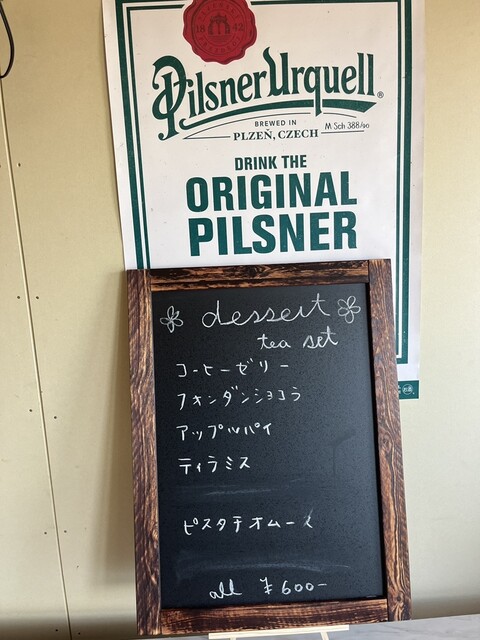 1842
Pilsner Urquell
®
BREWED IN
PLZEŇ, CZECH
M Sch 388/90
DRINK THE
ORIGINAL
PILSNER
dessert
tea set
コーヒーゼリー
フォンダンショコラ
アップルパイ
ティラミス
ピスタチオムース
all ¥600-